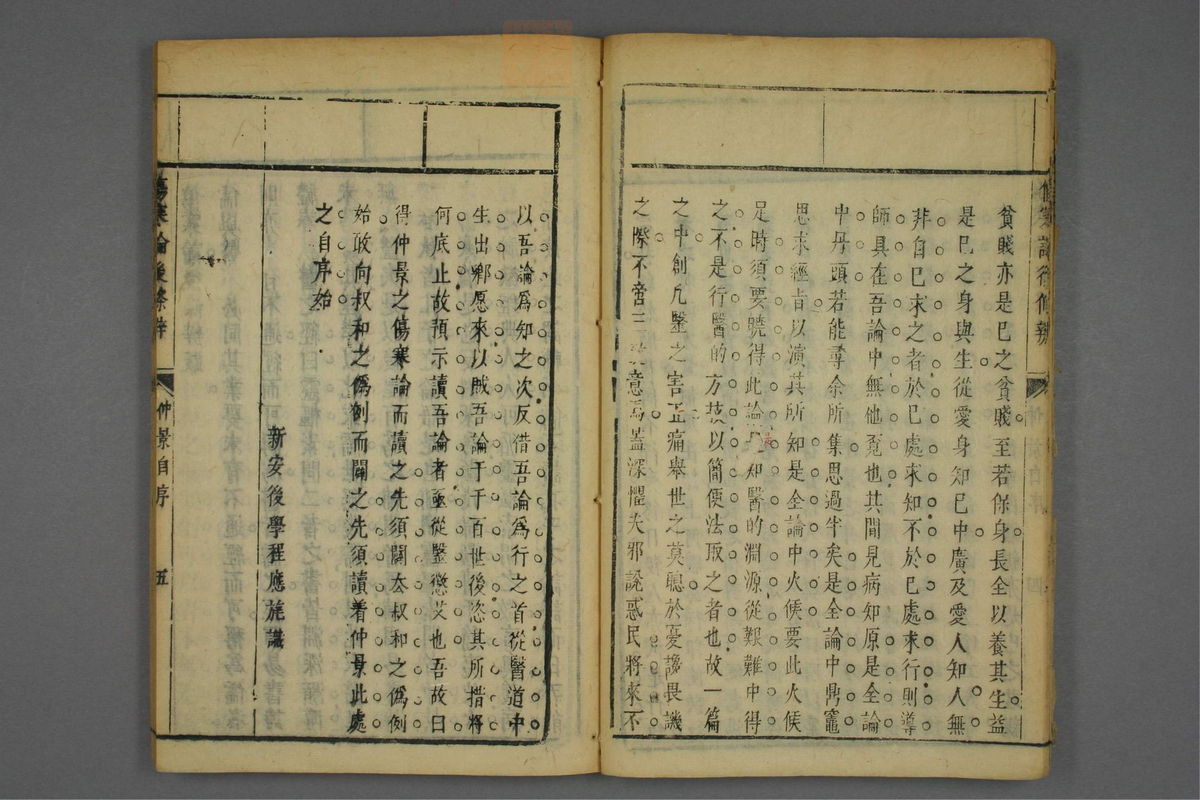 傷寒論後條辨
貧賤亦是已之貧賤至若保身長全以養其生益
是已之身與生從愛身知已中廣及愛人知人無
非自已求之者於已處求知不於已處求行則導
師具在吾論中無他覓也其間見病知原是全論
中丹頭若能尋余所集思過半矣是全論中鼎竈
思求經旨以演其所知是全論中火候要此火候
足時須要曉得此論知醫的淵源從艱難中得
之不是行醫的方技以簡便法取之者也故一篇
之中創凡醫之害正痛舉世之莫聽於憂讒畏譏
之際不啻三致意焉蓋深懼夫邪說惑民將來不
以吾論爲知之次反借吾論爲行之首從醫道中
生出鄉愿來以賊吾論于千百世後恣其所措將
何底止故預示讀吾論者亟從鑒懲艾也吾故曰
得仲景之傷寒論而讀之先須闢去叔和之僞例
始敢向叔和之僞例而闢之先須讀着仲景此處
之自序始
新安後學程應旄識
傷寒論後條辨
仲景自序
五